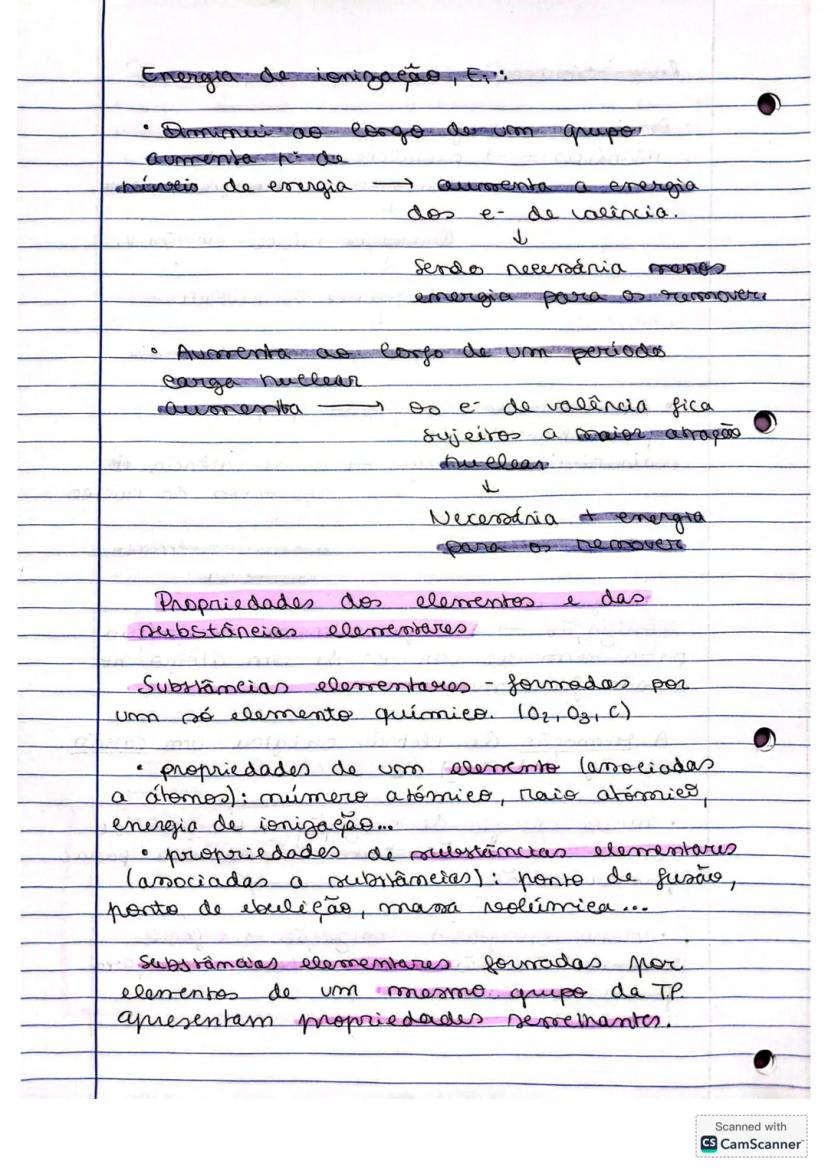 Energia de ionização, Ei:
• Diminui ao longo de um grupo
aumenta nº de
níveis de energia → aumenta a energia
dos e- de valência.
↓
Sendo necessária menos
energia para os remover.
• Aumenta ao longo de um período
carga nuclear
aumenta → os e- de valência fica
sujeitos a maior atração
nuclear
↓
Necessária + energia
para os remover
Propriedades dos elementos e das
substâncias elementares
Substâncias elementares - formadas por
um só elemento químico. (O2, O3, C)
• propriedades de um elemento (associadas
a átomos): número atómico, raio atómico,
energia de ionização...
• propriedades de substâncias elementares
(associadas a substâncias): ponto de fusão,
ponto de ebulição, massa volúmica...
Substâncias elementares formadas por
elementos de um mesmo grupo da T.P.
apresentam propriedades semelhantes.
Scanned with
CS CamScanner